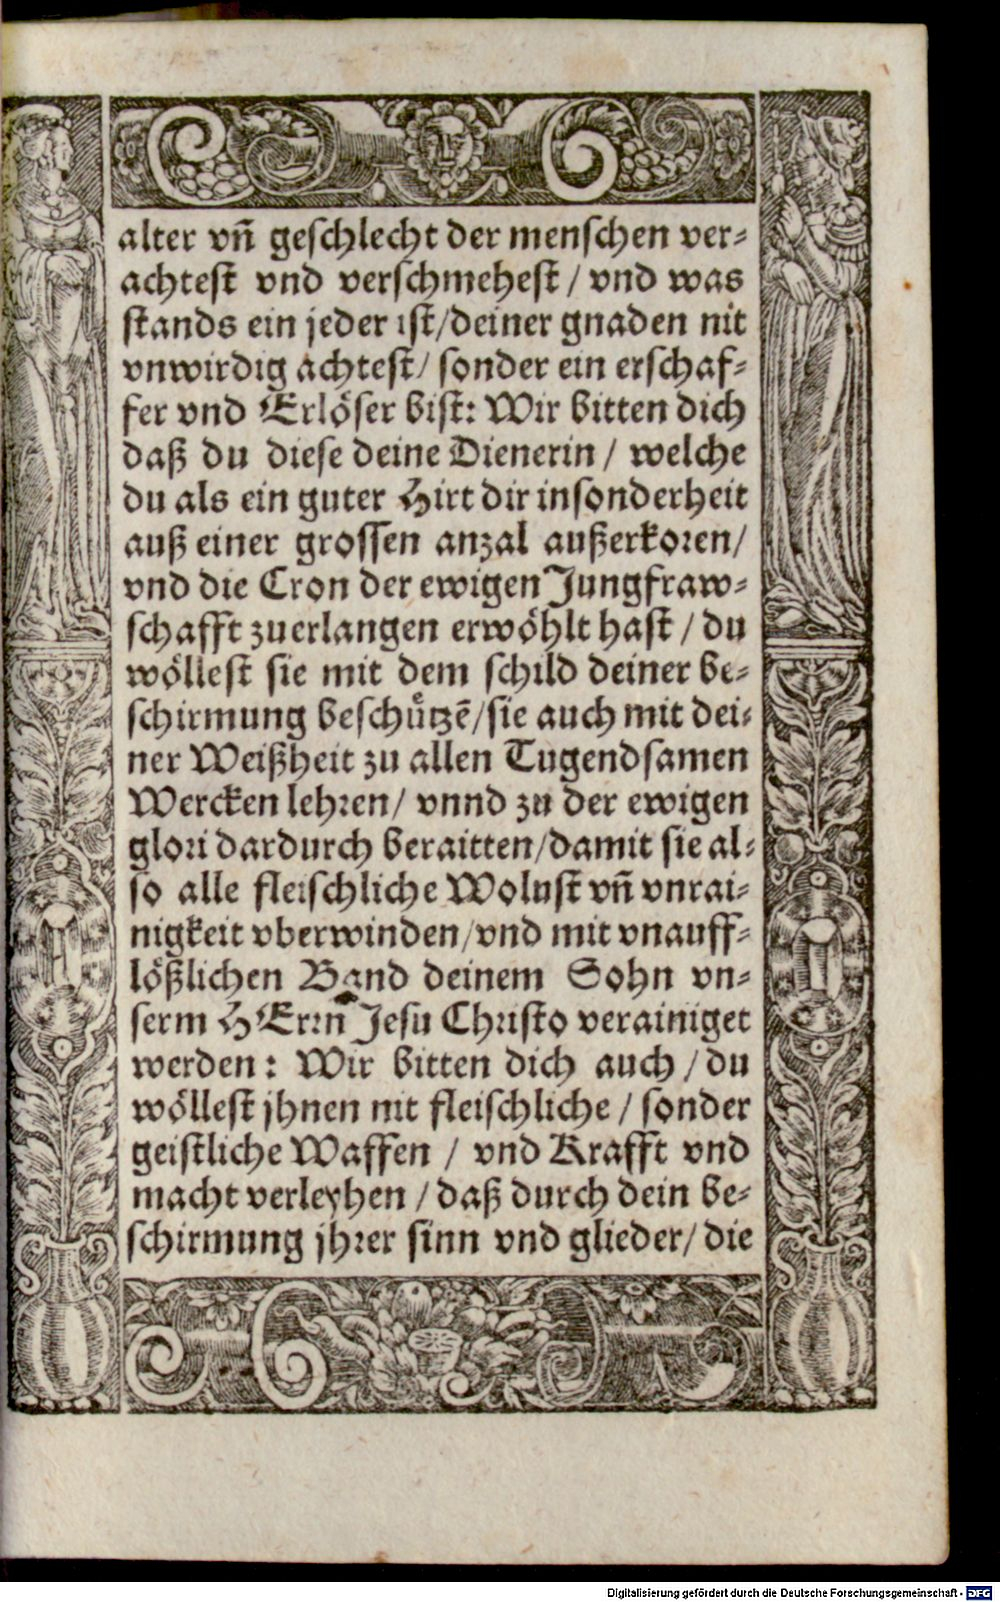 alter vñ geschlecht der menschen ver-
achtest vnd verschmehest / vnd was
stands ein jeder ist/deiner gnaden nit
vnwirdig achtest/ sonder ein erschaf-
fer vnd Erlöser bist: Wir bitten dich
daß du diese deine Dienerin / welche
du als ein guter Hirt dir insonderheit
auß einer grossen anzal außerkoren/
vnd die Cron der ewigen Jungfraw-
schafft zuerlangen erwöhlt hast / du
wöllest sie mit dem schild deiner be-
schirmung beschützē/sie auch mit dei-
ner Weißheit zu allen Tugendsamen
Wercken lehren/ vnnd zu der ewigen
glori dardurch beraitten/damit sie al-
so alle fleischliche Wolust vñ vnrai-
nigkeit vberwinden/vnd mit vnauff-
lößlichen Band deinem Sohn vn-
serm HErrn Jesu Christo verainiget
werden: Wir bitten dich auch / du
wöllest jhnen nit fleischliche / sonder
geistliche Waffen / vnd Krafft vnd
macht verleyhen / daß durch dein be-
schirmung jhrer sinn vnd glieder/ die
Digitalisierung gefördert durch die Deutsche Forschungsgemeinschaft - DFG